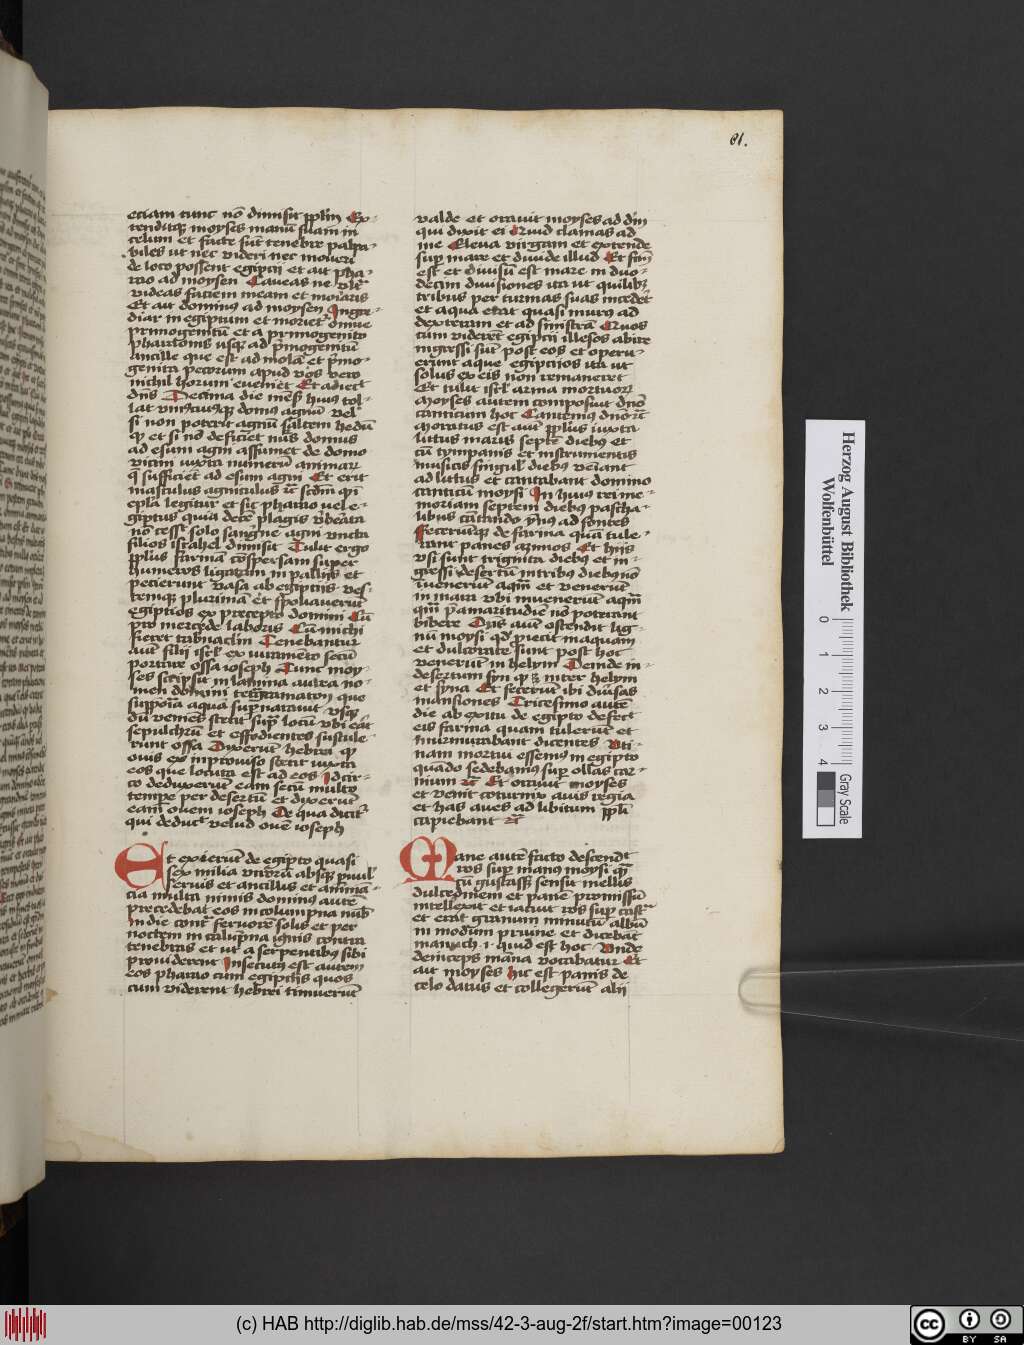 61.
etiam tunc nō dimisit pplm̄ Ex-
tenditqꝫ moyses manū suam in
celum et facte sūt tenebre palpa-
biles ut nec videri nec moueri
de loco possent egiptii et ait pha-
rao ad moysen Caueas ne vltr̄
videas faciem meam et morieris
Et ait dominus ad moysen Ingre-
diar in egiptum et morietr̄ omne
primogenitū et a primogenito
pharaonis usqꝫ ad p̄mogenitū
ancille que est ad molā et p̄mo-
genita pecorum apud vos vero
nichil horum eueniet Et adiecit
dn̄s Decima die mēs̄ huius tol-
lat vnusquisqꝫ domus agnū vel
si non poterit agnū saltem hedū
qꝫ et si nō deficiet min̄ domus
ad esum agni assumet de domo
vicini iuxta numerū animarꝝ
q̄ sufficiet ad esum agni Et erit
masculus agniculus ꝛc̄ scdm̄ qd̄
epl̄a legitur et sic pharao vel e-
giptus quia decē plagis v̄berata
nō cess. solo sangne agni vncta
filios israhel dimisit Tulit ergo
pplus farinā cōspersam super
humeros ligatam in palliis et
pecierunt vasa ab egiptiis ves-
temqꝫ plurimā et spoliauerūt
egiptios ex precepto domini Cū
pro mercede laboris Cū michi
fieret tabnaclm̄ Tenebantur
aut̄ filii isrl̄ ex iuramēto secū
portare ossa ioseph Tunc moy-
ses scripsit in lamina aurea no-
men domini tetgramaton que
supposita aqua supnatauit vsqꝫ
dū veniēs stetit sup̄ locū vbi erat
sepulchrū et effodientes sustule-
runt ossa Dixerūt hebrei qꝫ
ouis ex improuiso stetit iuxta
eos que locuta est ad eos Idcir-
co deduxerūt eam secū multo
tempe per desertū et dixerūt
eam ouem ioseph De qua dicit̄
qui deduc̄ velud ouē ioseph
Et exierūt de egipto quasi
sex milia virorū absqꝫ pauul̄
seruis et ancillis et animā-
lia multa nimis dominus autē
precedebat eos in columpna nub̄
in die cont̄ feruorē solis et per
noctem in calūpna ignis contra
tenebras et ut a serpentibus sibi
prouiderent Insecutus est autem
eos pharao cum egiptiis quos
cum viderent hebrei timuerūt
valde et orauit moyses ad dm̄
qui dixit ei Quid clamas ad
me Eleua virgam et extende
sup̄ mare et diuide illud Et fcm̄
est et diuisū est mare in duo-
decim diuisiones ita ut quilibꝫ
tribus per turmas suas incedēt
et aqua erat quasi murus ad
dexteram et ad sinistrā Quos
cum viderēt egiptii illesos abire
ingressi sūt post eos et operu-
erunt aque egiptiios ita ut
solus ex eis non remaneret
Et tulit isrl̄ arma mortuorꝝ
Moyses autem composuit dn̄o
canticum hoc Cantemus dn̄o ꝛc̄
Moratus est aut̄ pplus iuxta
littus maris septē diebus et
cū tympanis et instrumentis
musicis singul̄ diebus veniant
ad littus et cantabant domino
canticū moysi In huius rei me-
moriam septem diebus pascha-
libus cātando ymnos ad fontes
Feceruntqꝫ de farina quā tule-
rant panes azimos Et hiis
vsi sunt triginta diebus et in-
gressi desertū in tribus diebus nō
inuenerūt aqm̄ et venerūt
in mara vbi inuenerūt aqm̄
qm̄ p̄ amaritudinē nō poterant
bibere Dn̄s aut̄ ostendit lig-
nū moysi qd̄ piecit in aquam
et dulcorate sunt post hoc
venerūt in helym Deinde in-
desertum syn qꝫ ē inter helym
et syna Et fecerūt ibi diuersas
mansiones Tricesimo autē
die ab exitu de egipto defecit
eis farina quam tulerūt et
murmurabant dicentes Vti-
nam mortui essemus in egipto
quādo sedebamus sup ollas car-
nium ꝛc̄ Et orauit moyses
et venit coturnix auis regia
et has aues ad libitum ppl̄i
capiebant ꝛc̄
Mane autē facto descendit
ros sup manus moysi qm̄
cū gustasset sensit mellis
dulcedinem et panē promissū
intellexit et iacuit ros sup castr̄
et erat granum minutū albū
in modūm pruine et dicebāt
manuch .i. quid est hoc Vnde
deinceps manna vocabatur Et
ait moyses hic est panis de
celo datus et collegerūt alii
Herzog August Bibliothek
Wolfenbüttel
0 1 2 3 4
Gray Scale
(c) HAB http://diglib.hab.de/mss/42-3-aug-2f/start.htm?image=00123
cc BY SA